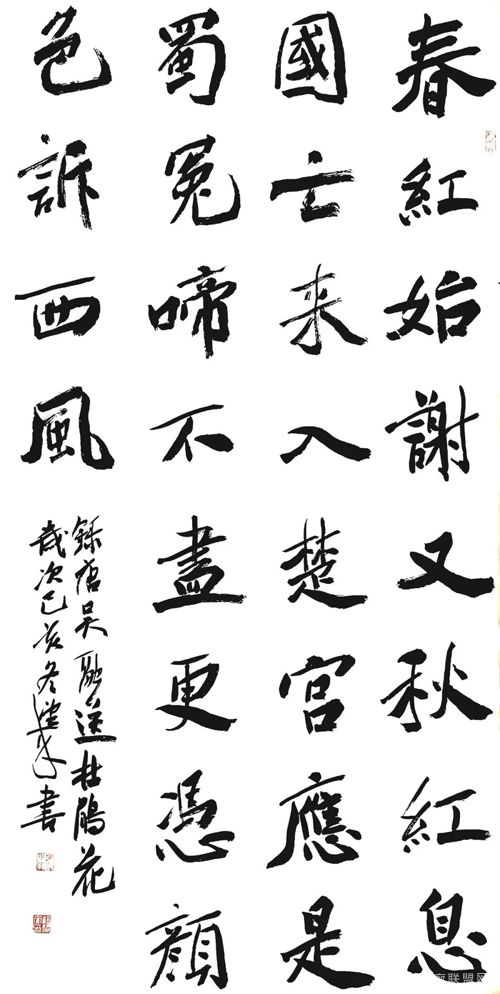 春紅始謝又秋紅息
國亡来入楚宮應是
蜀冤啼不盡更憑顏
色訴西風
録唐吴融送杜鵑花
歲次己亥冬書
联盟网